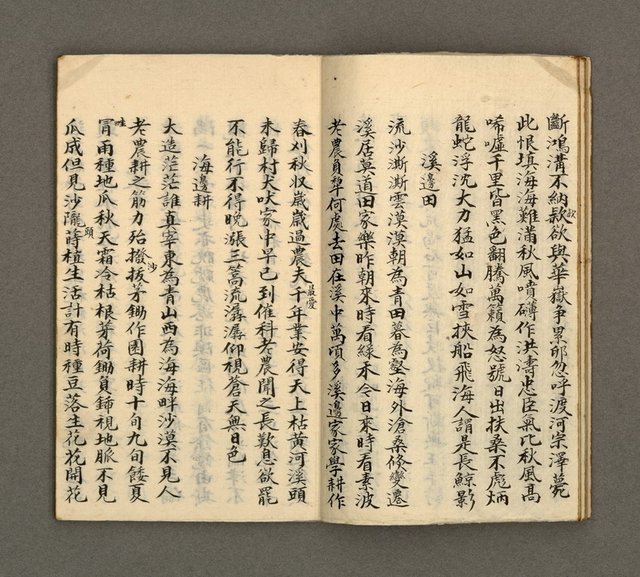 斷鴻溝不納款欲與華嶽爭累卵忽呼渡河宗澤薨
此恨填海海難滿秋風噴礡作洪濤忠臣氣比秋風高
唏噓千里皆黑色翻騰萬籟為怒號日出扶桑不彪炳
龍蛇浮沈大力猛如山如雪挾船飛海人謂是長鯨影
溪邊田
流沙澌澌雲漠漠朝為青田暮為壑海外滄桑倏變遷
溪居草道田家樂昨朝來時看綠禾今日來時看素波
老農負犂何處去田在溪中萬頃多溪邊家家學耕作
春刈秋収歲歲過農夫千年業安得天上枯黃河溪頭
最愛
未歸村犬吠家中早已到催科老農聞之長歎息欲罷
不能行不得晚漲三篙流潺潺仰視蒼天無日色
海邊耕
大造茫茫誰真宰東為青山西為海海畔沙漠不見人
老農耕之筋力殆撥拔茅鋤作園耕時十旬九旬餒夏
沙
冒雨種地瓜秋天霜冷枯根芽荷鋤負鍤視地脈不見
哇
瓜成但見沙隴蒔植生活計有時種豆落生花花開花
頭